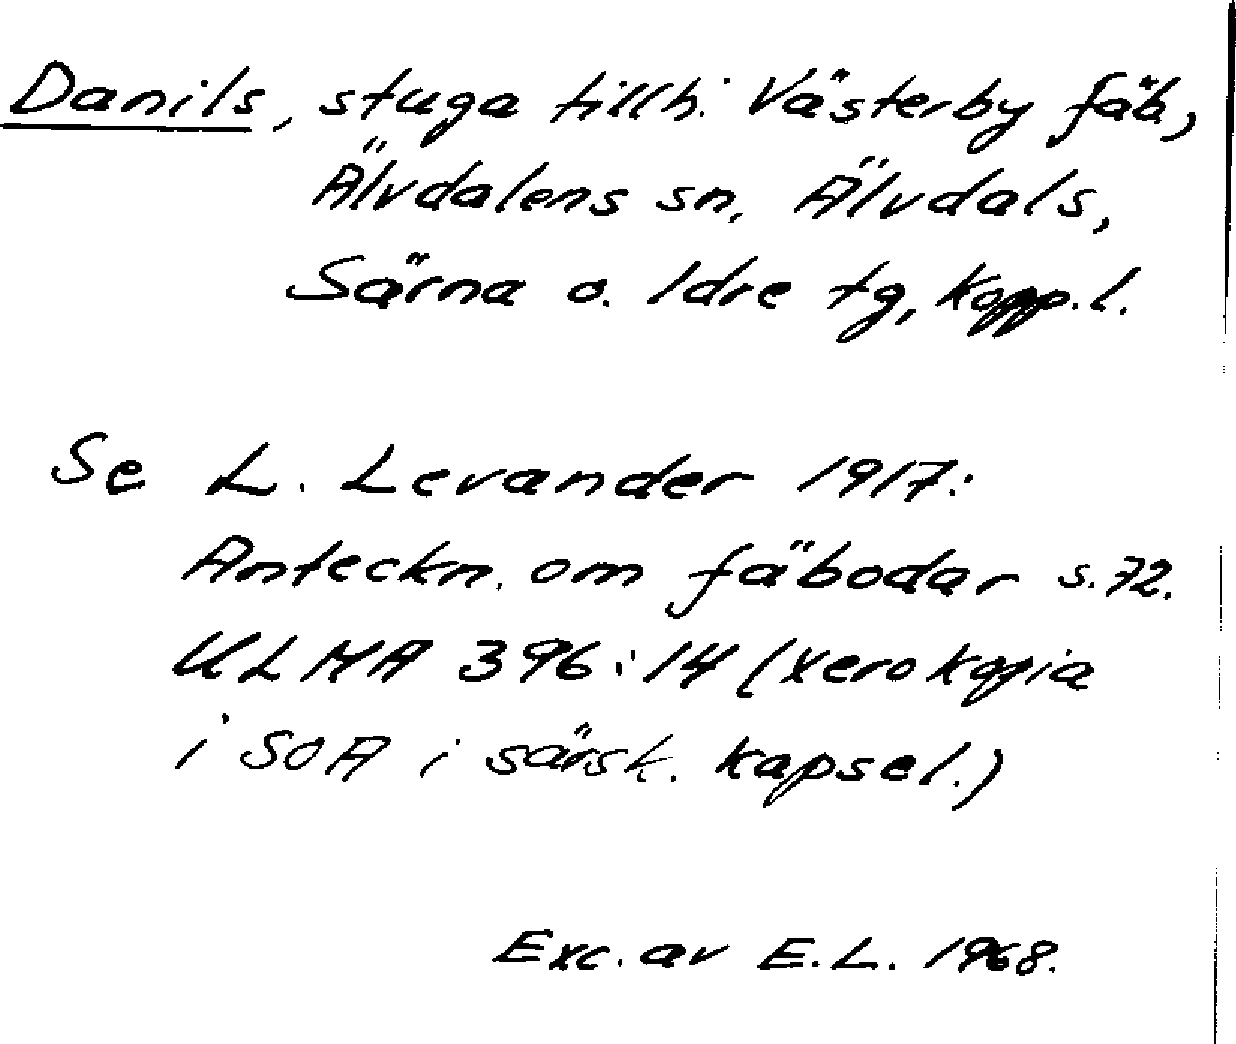 Danils, stuga tillh. Västerby fäb,
Älvdalens sn, Älvdals,
Särna o. Idre tg, Kopp.l.
Se L. Levander 1917:
Anteckn. om fäbodar s.72.
ULMA 396:14 (xerokopia
i SOA i särsk. kapsel.)
Exc. av E.L. 1968.